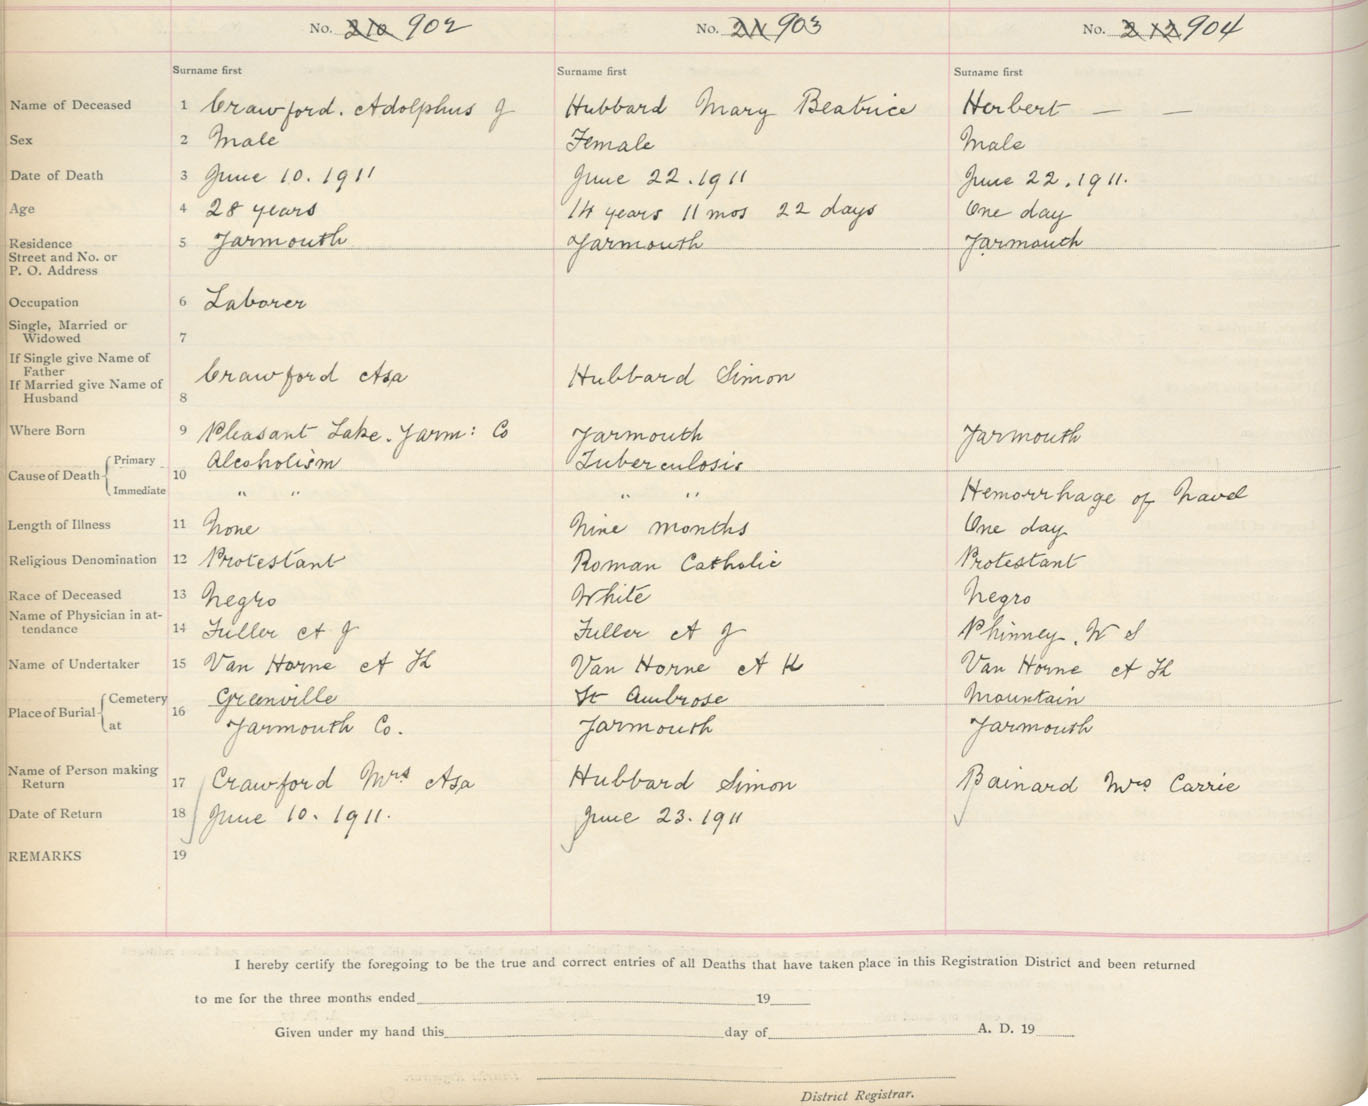 No. 210 902 No. 211 903 No. 212 904
Surname first Surname first Surname first
Name of Deceased 1 Crawford. Adolphus J Hubbard Mary Beatrice Herbert — —
Sex 2 Male Female Male
Date of Death 3 June 10. 1911 June 22. 1911 June 22. 1911.
Age 4 28 years 14 years 11 mos 22 days One day
Residence 5 Yarmouth Yarmouth Yarmouth
Street and No. or
P. O. Address
Occupation 6 Laborer
Single, Married or
Widowed 7
If Single give Name of
Father Crawford Asa Hubbard Simon
If Married give Name of
Husband 8
Where Born 9 Pleasant Lake. Yarm: Co Yarmouth Yarmouth
Cause of Death Primary 10 Alcoholism Tuberculosis
Immediate " " " " Hemorrhage of Navel
Length of Illness 11 None Nine months One day
Religious Denomination 12 Protestant Roman Catholic Protestant
Race of Deceased 13 Negro White Negro
Name of Physician in at-
tendance 14 Fuller A J Fuller A J Phinney. W S
Name of Undertaker 15 Van Horne A H Van Horne A H Van Horne A H
Place of Burial Cemetery 16 Greenville St Ambrose Mountain
at Yarmouth Co. Yarmouth Yarmouth
Name of Person making
Return 17 Crawford Mrs Asa Hubbard Simon Bainard Mrs Carrie
Date of Return 18 June 10. 1911. June 23. 1911
REMARKS 19
I hereby certify the foregoing to be the true and correct entries of all Deaths that have taken place in this Registration District and been returned
to me for the three months ended 19
Given under my hand this day of A. D. 19
District Registrar.